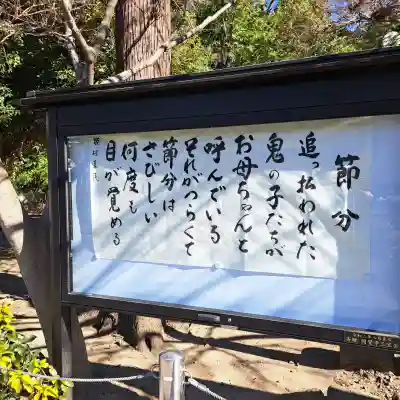 節分
追っ払われた
鬼の子たちが
お母ちゃんと
呼んでいる
それがつらくて
節分は
さびしい
何度も
目が覚める